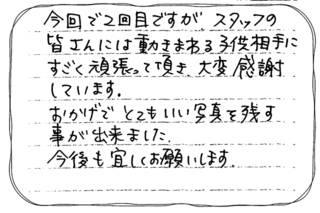 今回で2回目ですが、スタッフの
皆さんには動きまわる子供相手に
すごく頑張って頂き、大変感謝
しています。
おかげでとてもいい写真を残す
事が出来ました。
今後も宜しくお願いします。